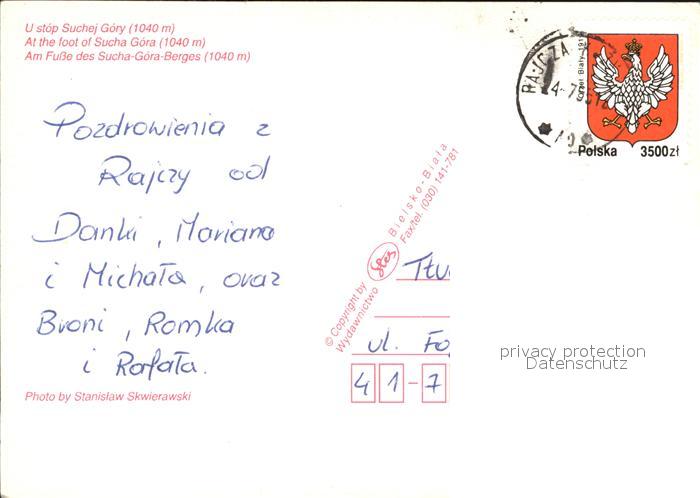 U stóp Suchej Góry (1040 m)
At the foot of Sucha Góra (1040 m)
Am Fuße des Sucha-Góra-Berges (1040 m)
Pozdrowienia z
Rajczy od
Danki, Mariana
i Michała, oraz
Broni, Romka
i Rafała.
Photo by Stanisław Skwierawski
© Copyright by
Wydawnictwo
Bielsko-Biała
Fax/tel. (030) 141-781
RAJCZA
Orzeł Biały
Polska 3500zł
ul. Fo
41-7
privacy protection
Datenschutz